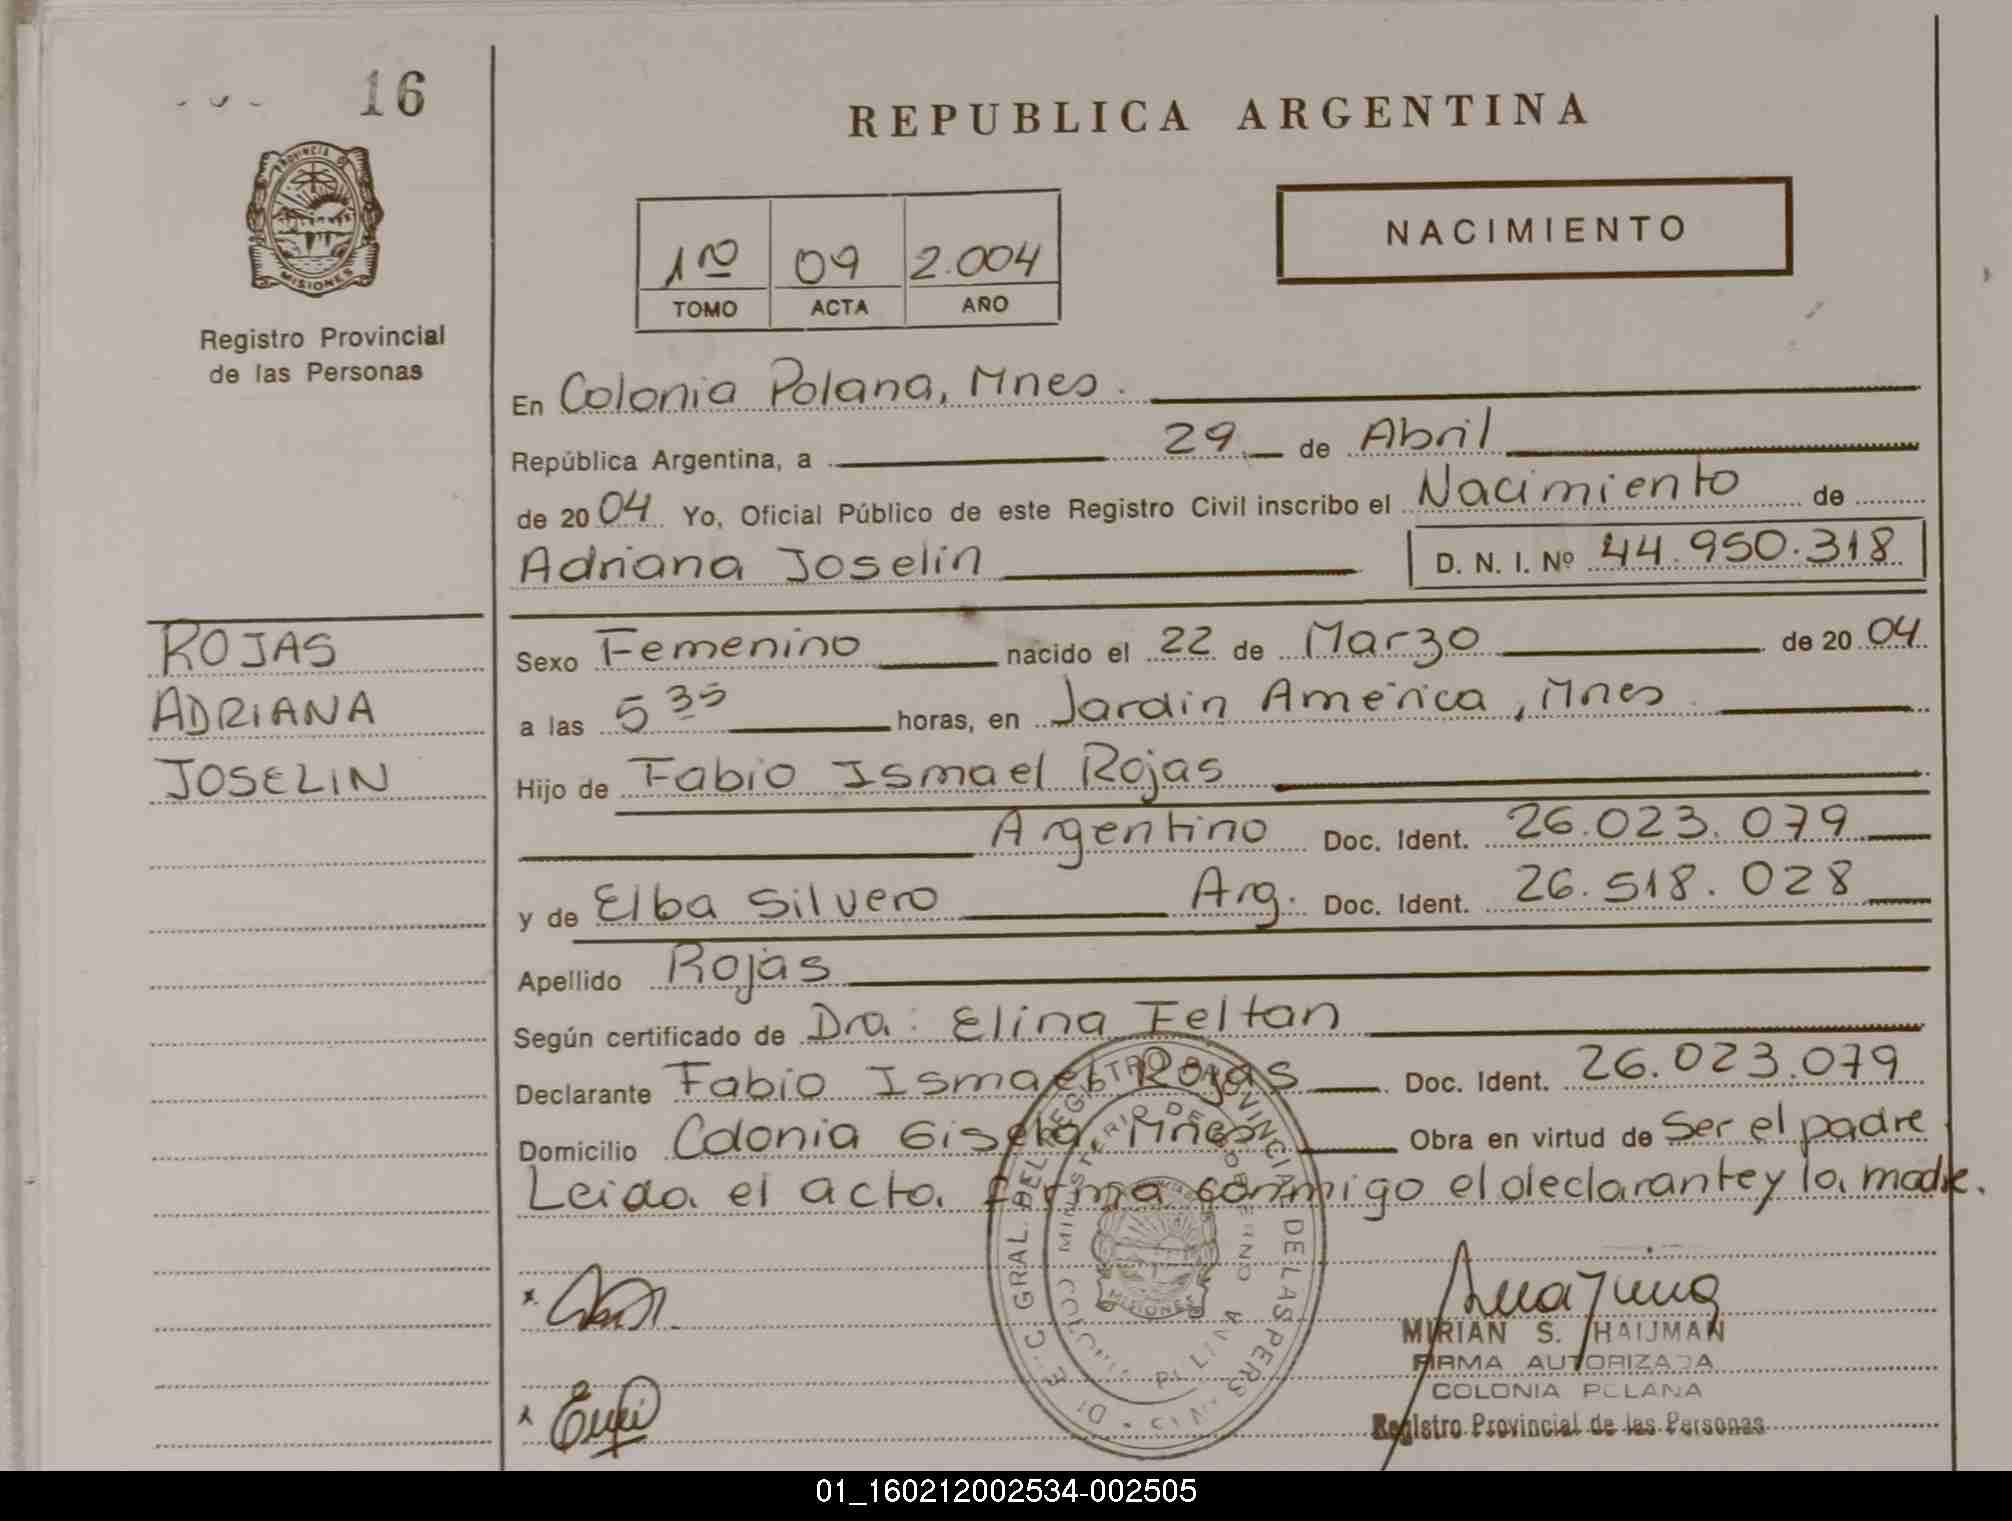 16
REPUBLICA ARGENTINA
PROVINCIA DE
MISIONES
NACIMIENTO
1ro 09 2.004
TOMO ACTA AÑO
Registro Provincial
de las Personas
En Colonia Polana, Mnes.
República Argentina, a 29 de Abril
de 2004 Yo, Oficial Público de este Registro Civil inscribo el Nacimiento de
Adriana Joselin D. N. I. Nº 44.950.318
ROJAS
ADRIANA
JOSELIN
Sexo Femenino nacido el 22 de Marzo de 2004
a las 5 35 horas, en Jardin América, Mnes.
Hijo de Fabio Ismael Rojas
Argentino Doc. Ident. 26.023.079
y de Elba Silvero Arg. Doc. Ident. 26.518.028
Apellido Rojas
Según certificado de Dra: Elina Feltan
Declarante Fabio Ismael Rojas Doc. Ident. 26.023.079
Domicilio Colonia Gisela, Mnes Obra en virtud de Ser el padre.
Leida el acta firma conmigo el declarante y la madre.
GRAL. DEL REGISTRO PROVINCIAL DE LAS PERS
MINISTERIO DE GOBIERNO
MISIONES
MIRIAN S. HAIJMAN
FIRMA AUTORIZADA
COLONIA POLANA
Registro Provincial de las Personas
01_160212002534-002505